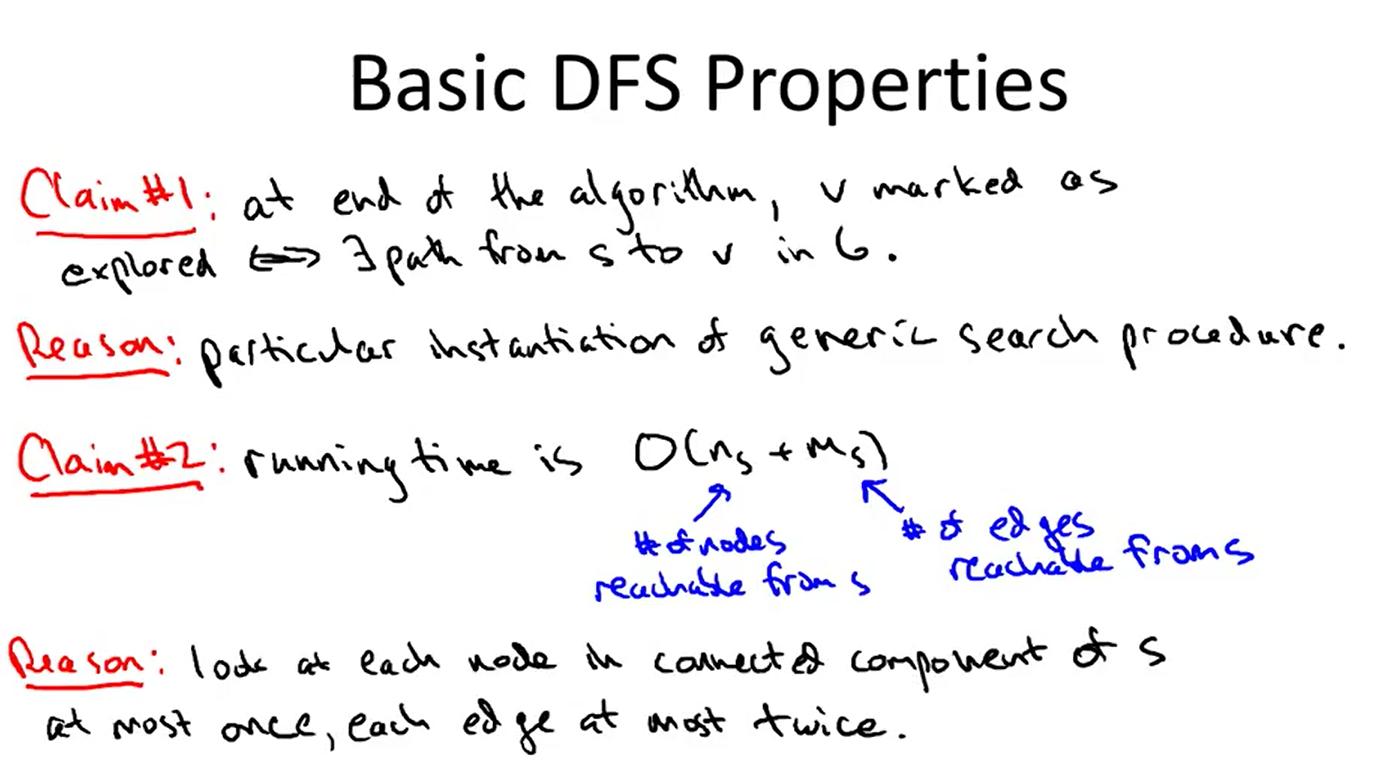 Basic DFS Properties
Claim #1: at end of the algorithm, v marked as
explored ⟺ ∃ path from s to v in G.
Reason: particular instantiation of generic search procedure.
Claim #2: running time is O(nₛ + mₛ)
# of nodes
reachable from s
# of edges
reachable from s
Reason: look at each node in connected component of s
at most once, each edge at most twice.